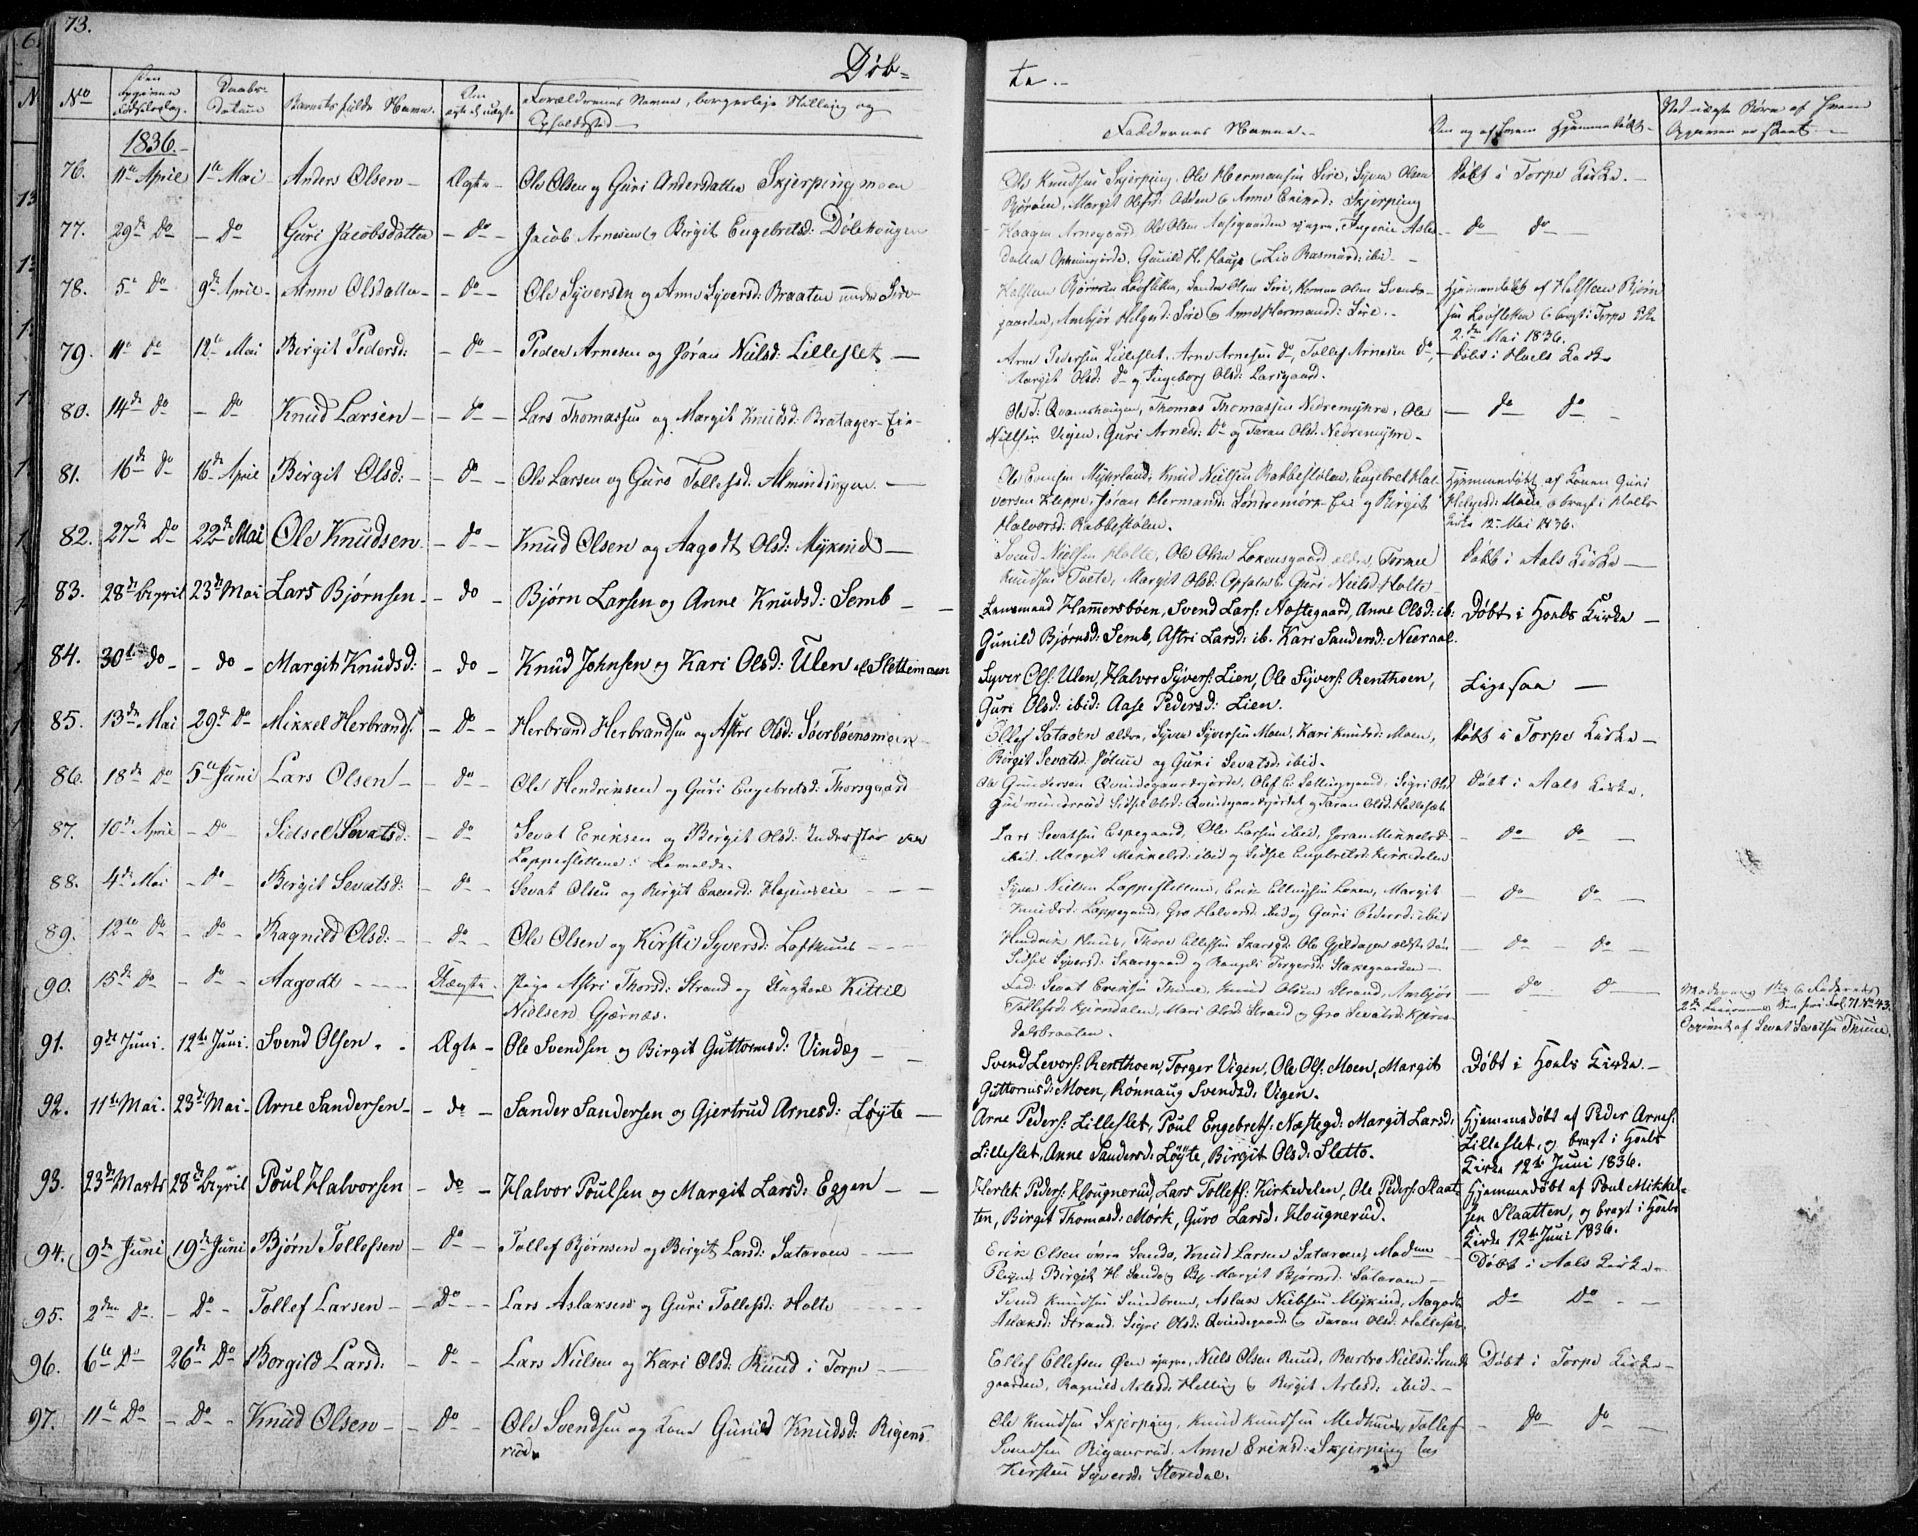 73.
Døb=
te.
No
Den
Fødselsdag.
Daabs-
Datum
Barnets fulde Navn.
Om
ægte el. uægte
Forældrenes Navne, borgerlige Stilling og
Opholdssted
Faddernes Navne.
Om og af hvem Hjemmedøbt.
Ved uægte Børn af hvem
1836.
76. 11te April 1te Mai Anders Olsen Ægte Ole Olsen og Guri Andersdatter Skjerpingmoen
Ole Knudsen Skjerping, Ole Hermansen Sire, Syver Olsen
Døbt i Torpe Kirke.
Margit Olsd: Ødden & Anne Eriksd: Skjerping
77. 29de Do Do Guri Jacobsdatter do Jacob Arnesen & Birgit Engebretsd: Dølehougen
do do
78. 5te Do 9de April Anne Olsdatter do Ole Syversen og Anne Syversd: Braaten under Sire
gaarden, Ambjør Helgesd: Sire & Anne Hermansd: Sire.
Hjemmedøbt af Halsteen Bjørn
sen Løvsletten & bragt i Torpe Kke
2den Mai 1836.
79. 11te Do 12te Mai Birgit Pedersd: do Peder Arnesen og Jøran Nielsd: Lilleslet
Arne Pedersen Lilleslet, Arne Arnesen Do, Tollef Arnesen Do,
Margit Olsd: Do og Ingeborg Olsd: Larsgaard.
Døbt i Hoels Kirke
80. 14de Do Do Knud Larsen do Lars Thomassen og Margit Knudsd: Bratager-Eie
Ole T: Qvamshaugen, Thomas Thomassen Nedremyhre, Ole
Nielsen Vigen, Guri Arnesd: Do og Taran Olsd. Nedremyhre
do do
81. 16de Do 16de April Birgit Olsd: do Ole Larsen og Guro Tollefsd: Almindingen
Ole Evensen Myhrland, Knud Nielsen Rabbestølen, Engebret Hal-
vorsen Kleppe, Jøran Hermansd: Søndremørk-Eie og Birgit
Halvorsd: Rabbestølen.
Hjemmedøbt af Konen Guri
Helgesd: Moen, & bragt i Holls
Kirke 12te Mai 1836.
82. 27de Do 22de Mai Ole Knudsen do Knud Olsen og Aagodt Olsd: Mykind
Svend Nielsen Holte, Ole Olsen Lokensgaard ældre, Torkel
Knudsen Tveto, Margit Olsd: Opsalen & Guri Nielsd: Holte
Døbt i Aals Kirke
83. 28de April 23de Mai Lars Bjørnsen do Bjørn Larsen og Anne Knudsd: Semb
Lensmand Hammersbøen, Svend Lars: Næstegaard, Anne Olsd: ib:
Gunild Bjørnsd: Semb, Astri Larsd: ib. Kari Sandersd: Neeraal.
Døbt i Hoels Kirke
84. 30te do do Margit Knudsd: do Knud Johnsen og Kari Olsd: Ulen af Slettemoen
Syver Ols: Ulen, Halvor Syvers: Lien, Ole Syvers: Renthoen,
Guri Olsd: ibid: Aase Pedersd: Lien.
Ligesaa
85. 13de Mai 29de Do Mikkel Herbrands: Do Herbrand Herbrandsen og Astri Olsd: Søerbøensmoen
Ellef Sataøen ældre, Syver Syversen Moen, Kari Knudsd: Moen,
Birgit Sevatsd. Jølum og Guri Sevatsd: ibid.
Døbt i Torpe Kirke
86. 18de Do 5te Juni Lars Olsen do Ole Hendriksen og Guri Engebretsd: Thorsgaard
Døbt i Aals Kirke.
87. 10de April Do Sidsel Sevatsd: do Sevat Eriksen og Birgit Olsd:
Lars Sevatsen Espegaard, Ole Larsen ibid, Jøran Mikkelsd:
ibid. Margit Mikkelsd: ibid og Sidsel Engebretsd: Kirkedelen
do do
88. 4de Mai Do Birgit Sevatsd: do Sevat Olsen og Birgit
Syver Nielsen Lappesletten, Erik Ellingsen Lonen, Margit
Knudsd: Lappegaard, Gro Halvorsd: ibid og Guri Pedersd: ibid
do do
89. 12te Do Do Ragnild Olsd: do Ole Olsen og Kirsti Syversd: Lofthuus
Sidsel Syversd: Skarsgaard og Rangdi Torgersd: Stakegaarden
do do
90. 15de Do Do Aagodt Uægte Pige Astri Thorsd: Strand og Ungkarl Kittil
Nielsen Gjærnæs.
Fad: Sevat Eriksen Thune, Knud Olsen Strand, Ambjør
Tollefsd: Kjirndalen, Mari Olsd: Strand & Gro Sevatsd: Kjirn-
dalsbraaten.
do do
Moderens 1te & Faderens
Opgivet af Sevat Sevatsen Thune.
91. 9de Juni 12te Juni Svend Olsen Ægte Ole Svendsen og Birgit Guttormsd: Vindeg
Svend Levors: Renthoen, Torger Vigen, Ole Ols: Moen, Margit
Guttormsd: Moen, Rønnaug Svendsd: Vigen.
Døbt i Hoels Kirke.
92. 11te Mai. 23de Mai Arne Sandersen do Sander Sandersen og Gjertrud Arnesd: Løyte
Arne Peders: Lilleslet, Poul Engebrets: Næstegd: Margit Larsd:
Lilleslet, Anne Sandersd: Løyte, Birgit Olsd: Sletto.
Hjemmedøbt af Peder Arnes:
Lilleslet, og bragt i Hoels
Kirke 12te Juni 1836.
93. 23de Marts 28de April Poul Halvorsen do Halvor Poulsen og Margit Larsd: Eggen
Herlek Peders: Hougnerud, Lars Tollefs: Kirkedelen, Ole Peders: Slaat-
ten, Birgit Thomasd: Mørk, Guro Larsd: Hougnerud.
Hjemmedøbt af Poul Mikkel-
sen Slaatten, og bragt i Hoels
Kirke 12te Juni 1836.
94. 9de Juni 19de Juni Bjørn Tollefsen do Tollef Bjørnsen og Birgit Larsd: Sataroen
Erik Olsen øvre Sando, Knud Larsen Sataroen, Madme
Døbt i Aals Kirke
95. 2den Do Do Tollef Larsen Do Lars Aslaksen og Guri Tollefsd: Holto
Svend Knudsen Sundbrein, Aslak Nielsen Mykind, Aagodt
Aslaksd: Strand, Sigri Olsd: Qvindegaard & Taran Olsd: Hallesæt
Do Do
96. 6te Do 26de Do Borgild Larsd: do Lars Nielsen og Kari Olsd: Ruud i Torpe
Ellef Ellefsen Øen yngre, Niels Olsen Ruud, Barbro Nielsd: Svends
gaarden, Ragnild Aslesd: Helling & Birgit Aslesd: ibid.
Døbt i Torpe Kirke
97. 11te Do Do Knud Olsen do Ole Svendsen og Kone Gunild Knudsd: Rigens
riid.
Ole Knudsen Skjerping, Knud Knudsen Medhuus, Tollef
Svendsen Rigansrud, Anne Eriksd: Skjerping og
Kirsten Syversd: Storedal.
do do